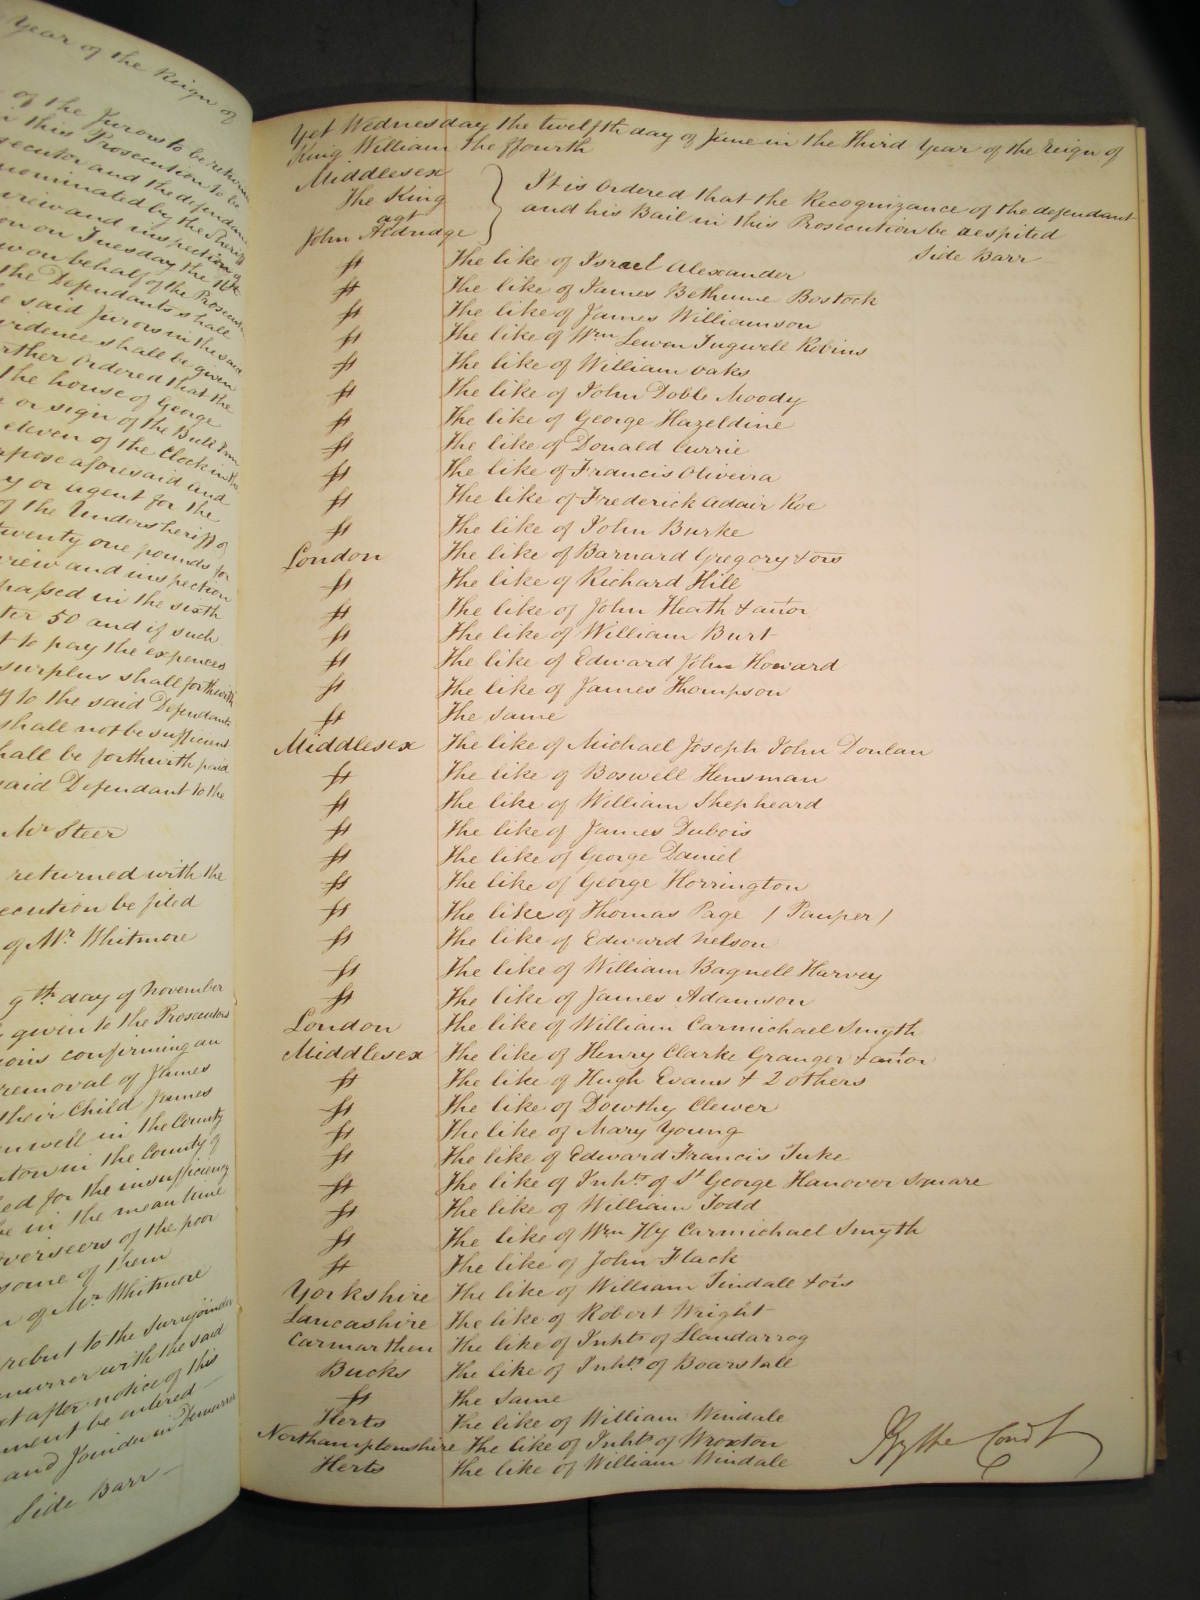 Year of the Reign of
of the Jurors to be return
in this Prosecution to be
secutor and the defendan
nominated by the Sheriff
view and inspection of
on on Tuesday the 18th
w on behalf of the Prosecu
the Defendants shall
said Jurors in the said
vidence shall be given
rther Ordered that the
the house of George
or sign of the Bull Inn
eleven of the Clock in the
rpose aforesaid and
y or agent for the
of the Undersheriff of
twenty one pounds for
view and inspection
passed in the sixth
ter 50 and if such
t to pay the expences
surplus shall forthwith
y to the said Defendants
shall not be sufficient
hall be forthwith paid
said Defendant to the
Mr Steer
returned with the
ecution be filed
of Mr. Whitmore
9th day of November
given to the Prosecutors
ions confirming an
removal of James
their Child James
nwell in the County
ton in the County of
ed for the insufficiency
be in the meantime
Overseers of the poor
some of them
n of Mr. Whitmore
rebut to the Surrejoinder
murrer with the said
xt after notice of this
ment be entered
and Joinder in Demurrer
Side Barr
Yet Wednesday the twelfth day of June in the third Year of the Reign of
King William the ffourth
Middlesex
The King
agt
John Aldridge
It is Ordered that the Recognizance of the defendant
and his Bail in this Prosecution be despited
Side Barr
ss The like of Israel Alexander
ss The like of James Bethume Bostock
ss The like of James Williamson
ss The like of Wm Lewen Tugwell Robins
ss The like of William Oaks
ss The like of John Doble Moody
ss The like of George Hazeldine
ss The like of Donald Currie
ss The like of Francis Oliveira
ss The like of Frederick Adair Roe
ss The like of John Burke
London The like of Barnard Gregory & ors
ss The like of Richard Hill
ss The like of John Heath & anor
ss The like of William Burt
ss The like of Edward John Howard
ss The like of James Thompson
ss The same
Middlesex The like of Michael Joseph John Donlan
ss The like of Boswell Hensman
ss The like of William Shepheard
ss The like of James Dubois
ss The like of George Daniel
ss The like of George Horrington
ss The like of Thomas Page / Pauper /
ss The like of Edward Nelson
ss The like of William Bagnell Harvey
ss The like of James Adamson
London The like of William Carmichael Smyth
Middlesex The like of Henry Clarke Granger & anor
ss The like of Hugh Evans & 2 others
ss The like of Dowthy Clewer
ss The like of Mary Young
ss The like of Edward Francis Tuke
ss The like of Inhts of St George Hanover Square
ss The like of William Todd
ss The like of Wm Hy Carmichael Smyth
ss The like of John Flack
Yorkshire The like of William Tindale & ors
Lancashire The like of Robert Wright
Carmarthen The like of Inhts of Llandarrog
Bucks The like of Inhts of Boarstall
ss The Same
Herts The like of William Windale
Northamptonshire The like of Inhts of Wroxton
Herts The like of William Windale